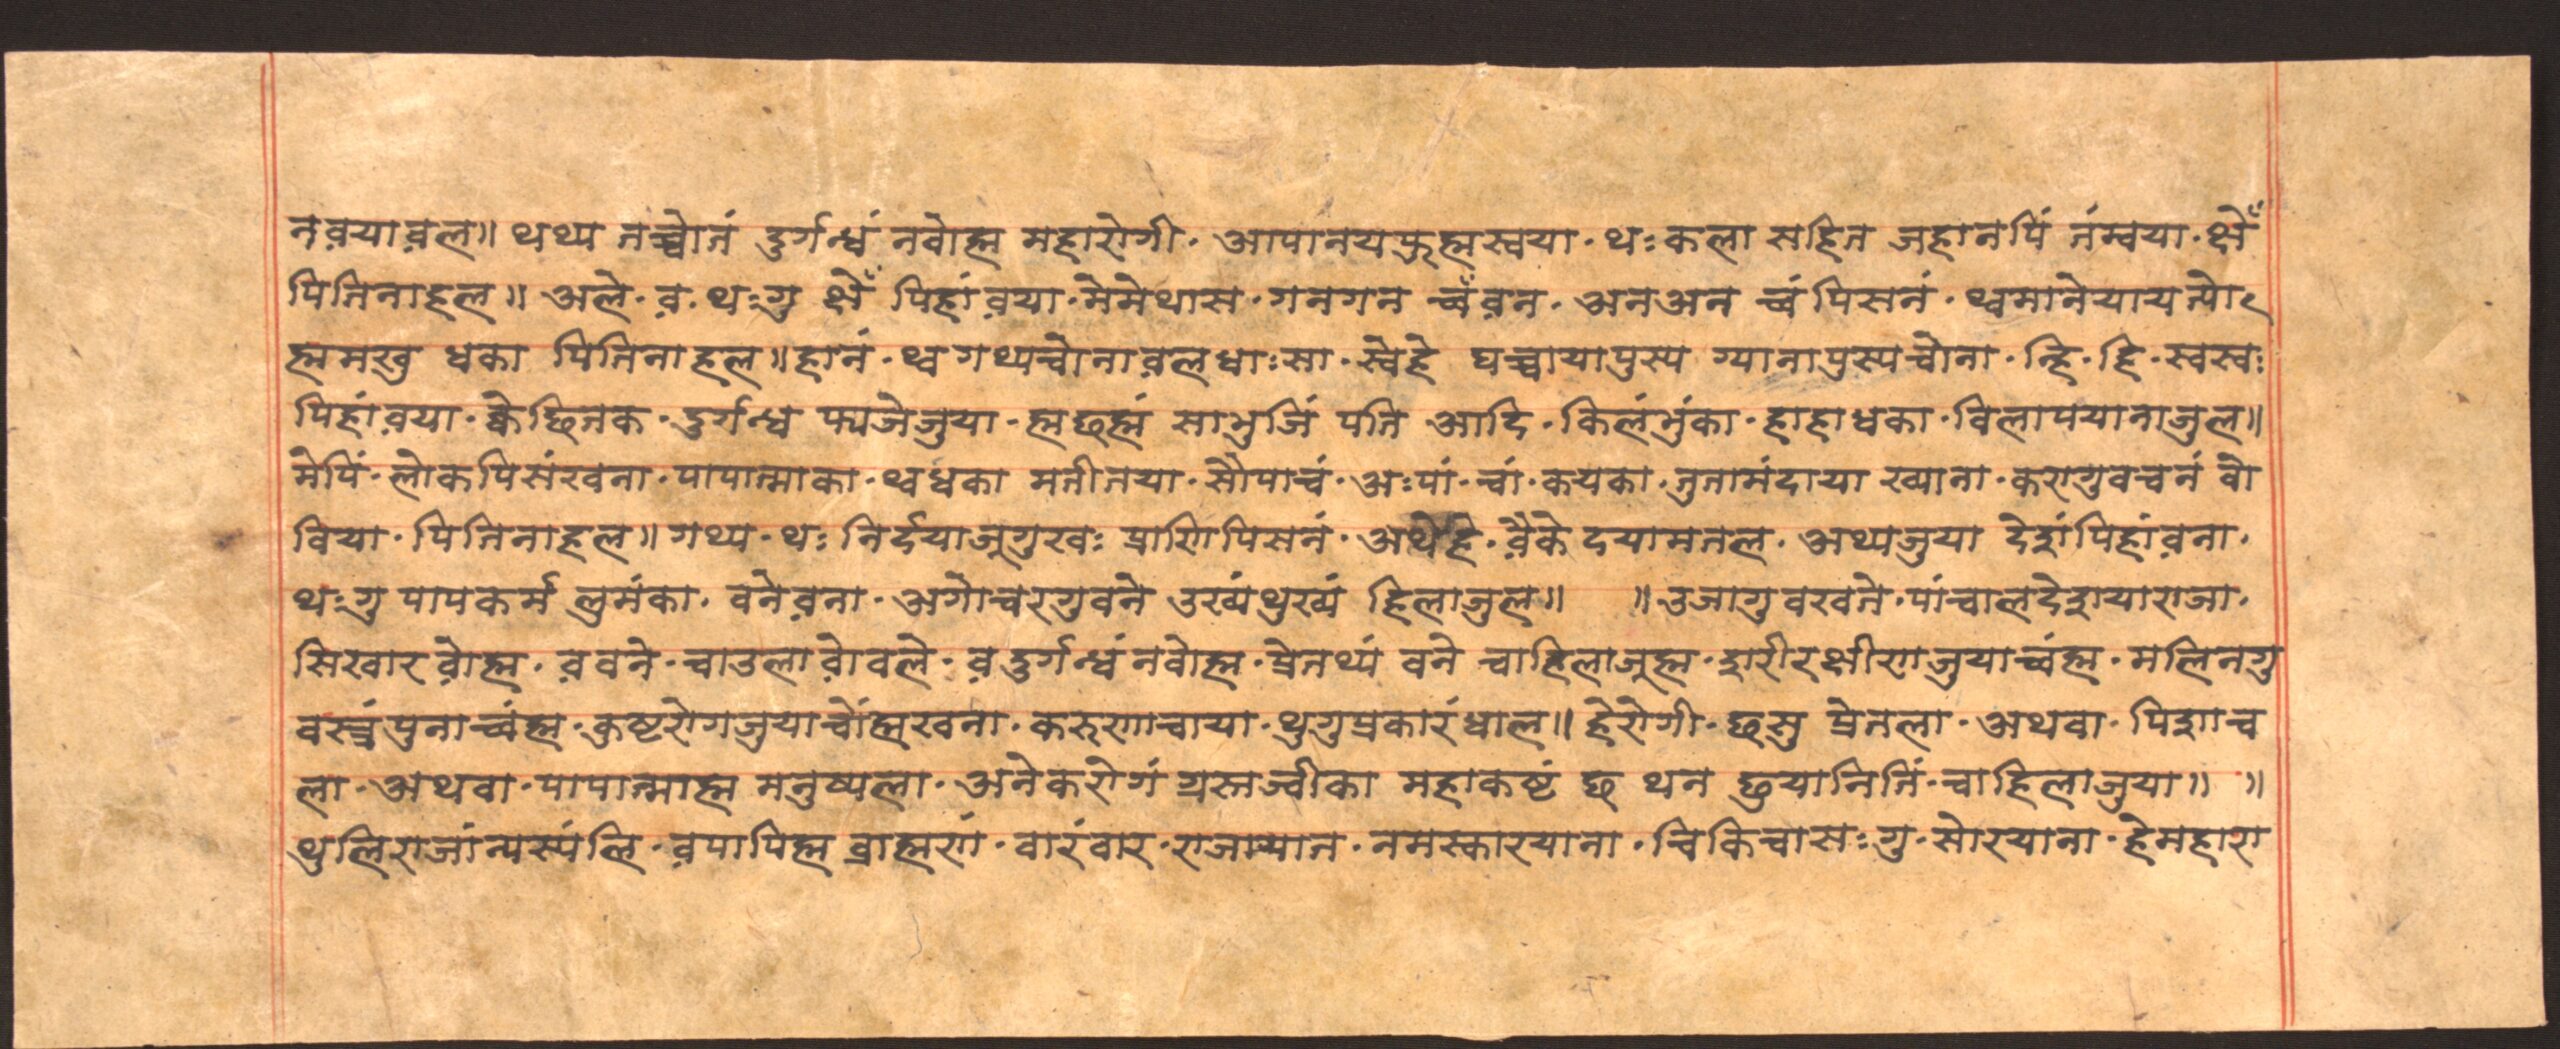 नव़याव़ल॥ थथ्य नच्वोनं दुर्गन्धं नवोह्म महारोगी· आपानयफ्रुह्मस्वया· थःकला सहित जहानपिं नंम्वया·क्षेँ
पितिनाहल॥ अले·व़·थःगु क्षेँ पिहांव़या·मेमेथास·गनगन च्वंव़न·अनअन च्वंपिसनं·थ्वमानेयायत्यो
ह्ममखु धका पितिनाहल॥हानं·थ्वगथ्यच्वोनाव़लधाःसा·स्वेहे घच्चायापुस्य ग्यानापुस्यच्वोना·न्हि·हि·स्वस्वः
पिहांव़या·क्वेछिनक·दुर्गन्ध फ्यजेजुया·ह्मछह्मं साभुजिं पनि आदि·किलंभुंका·हाहाधका·विलापयानाजुल॥
मेपिं·लोकपिसंखना·पापात्माका·थ्वधका मतीतया·सोपाच्वं·अःपां·च्वां·कयका·तुतामंदाया ख्याना·करागुवच्चनं वो
विया·पितिनाहल॥गथ्य·थः निर्दयाजूगुखः प्राणिपिसनं·अथेहे·व़ैके दयामतल·अथ्यजुया देशंपिहांव़ना·
थःगु पापकर्म लुमंका·वनेव़ना·अगोचरगुवने उख्यंथुख्यं हिलाजुल॥ ॥उजागुवखतने·पांचालदेशयाराजा·
सिखारव़ोह्म·व़वने·चाउलाव़ोवले·व़दुर्गन्धंनवोह्म·प्रेतथ्यं वने चाहिलाजूह्म·शरीरक्षीणजुयाच्वंह्म·मलिनगु
वस्त्रंपुनाच्वंह्म·कुष्टरोगजुयाच्वोंह्मखना·करुणाचाया·थुगुप्रकारंधाल॥हेरोगी·छसु प्रेतला·अथवा·पिशाच
ला·अथवा·पापात्माह्म मनुष्यला·अनेकरोगं ग्रस्तज्वीका महाकष्टं छ थन छुयानितिं·चाहिलाजुया॥ ॥
थुलिराजांन्यस्यंलि·व़पापिह्म ब्राह्मणं·वारंवार·राजायात·नमस्कारयाना·चिकिचासःगु·सोरयाना·हेमहारा